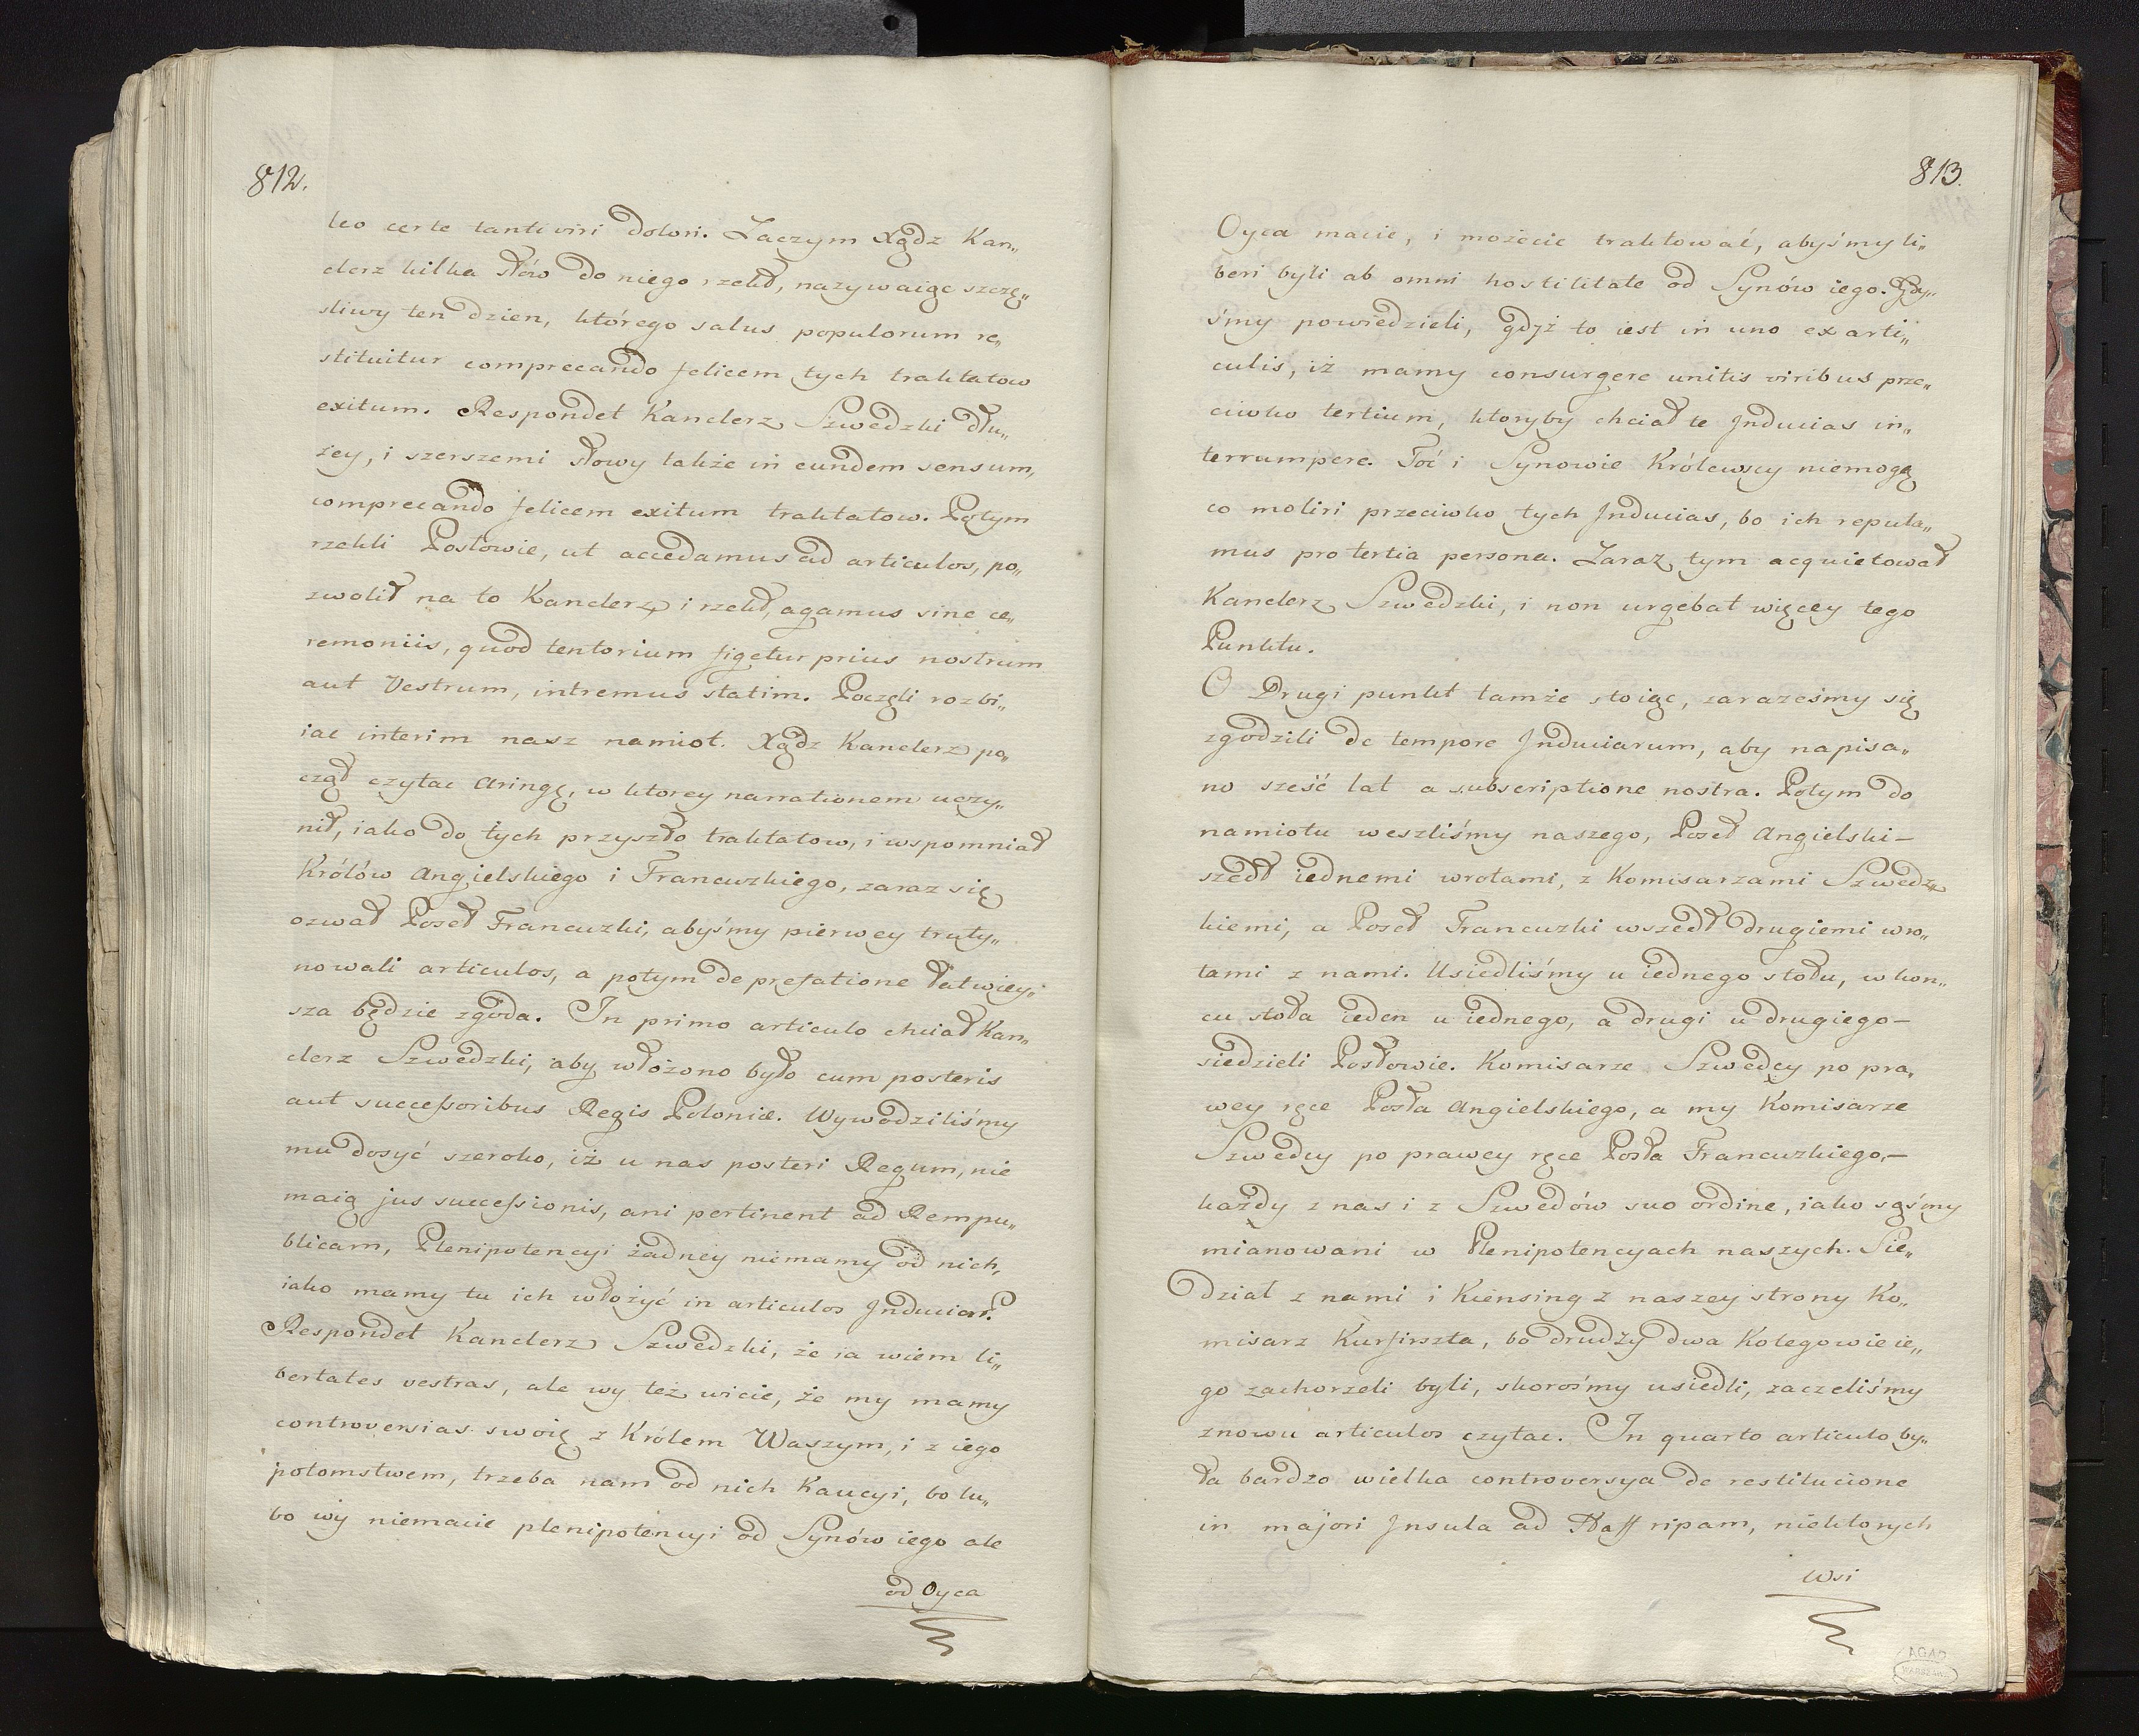 812.
leo certe tanti viri dolori. Zaczym Xądz Kan„
clerz kilka słów do niego rzekł, nazywaiąc szczę„
sliwy ten dzien, którego salus populorum re„
stituitur comprecando felicem tych traktatow
exitum. Respondet Kanclerz Szwedzki dłu„
żey, i szerszemi słowy także in eundem sensum,
comprecando felicem exitum traktatow. Potym
rzekli Posłowie, ut accedamus ad articulos, po„
zwolił na to Kanclerz, i rzekł, agamus sine ce„
remoniis, quod tentorium figetur prius nostrum
aut Vestrum, intremus statim. Poczęli rozbi„
iac interim nasz namiot. Xądz Kanclerz po„
czął czytac Aringę, w ktorey narrationem uczy„
nił, iako do tych przyszło traktatow, i wspomniał
Królów Angielskiego i Francuzkiego, zaraz się
ozwał Poseł Francuzki, abyśmy pierwey truty„
nowali articulos, a potym de prefatione łatwiey„
sza będzie zgoda. In primo articulo chciał Kan„
clerz Szwedzki, aby włożono było cum posteris
aut successoribus Regis Poloniæ. Wywodziliśmy
mu dosyć szeroko, iż u nas posteri Regum, nie
maią jus successionis, ani pertinent ad Rempu„
blicam, Plenipotencyi żadney niemamy od nich,
iako mamy tu ich włożyć in articulos Induciar?
Respondet Kanclerz Szwedzki, że ia wiem li„
bertates vestras, ale wy też wicie, że my mamy
controversias swoię z Królem Waszym, i z iego
potomstwem, trzeba nam od nich Kaucyi, bo lu„
bo wy niemacie plenipotencyi od Synów iego ale
od Oyca
813.
Oyca macie, i możecie traktować, abyśmy li„
beri byli ab omni hostilitate od Synów iego. Gdy„
śmy powiedzieli, gdyż to iest in uno ex arti„
culis, iż mamy consurgere unitis viribus prze„
ciwko tertium, ktoryby chciał te Inducias in„
terrumpere. Toć i Synowie Królewscy niemogą
co moliri przeciwko tych Inducias, bo ich reputa„
mus pro tertia persona. Zaraz tym acquietował
Kanclerz Szwedzki, i non urgebat więcey tego
Punktu.
O Drugi punkt tamże stoiąc, zaraześmy się
zgodzili de tempore Induciarum, aby napisa„
no sześć lat a subscriptione nostra. Potym do
namiotu weszliśmy naszego, Poseł Angielski –
szedł iednemi wrotami, z Komisarzami Szwedz„
kiemi, a Poseł Francuzki wszedł drugiemi wro„
tami z nami. Usiedliśmy u iednego stołu, w kon„
cu stoła ieden u iednego, a drugi u drugiego –
siedzieli Posłowie. Komisarze Szwedcy po pra„
wey ręce Posła Angielskiego, a my Komisarze
Szwedcy po prawey ręce Posła Francuzkiego, –
każdy z nas i z Szwedów suo ordine, iako sąśmy
mianowani w Plenipotencyach naszych. Sie„
dział z nami i Kiensing z naszey strony Ko„
misarz Kurfirszta, bo drudzy dwa Kolegowie ie„
go zachorzeli byli, skorośmy usiedli, zaczeliśmy
znowu articulos czytac. In quarto articulo by„
ła bardzo wielka controversya de restitucione
in majori Insula ad Haff ripam, niektorych
Wsi
AGAD
WARSZAWA